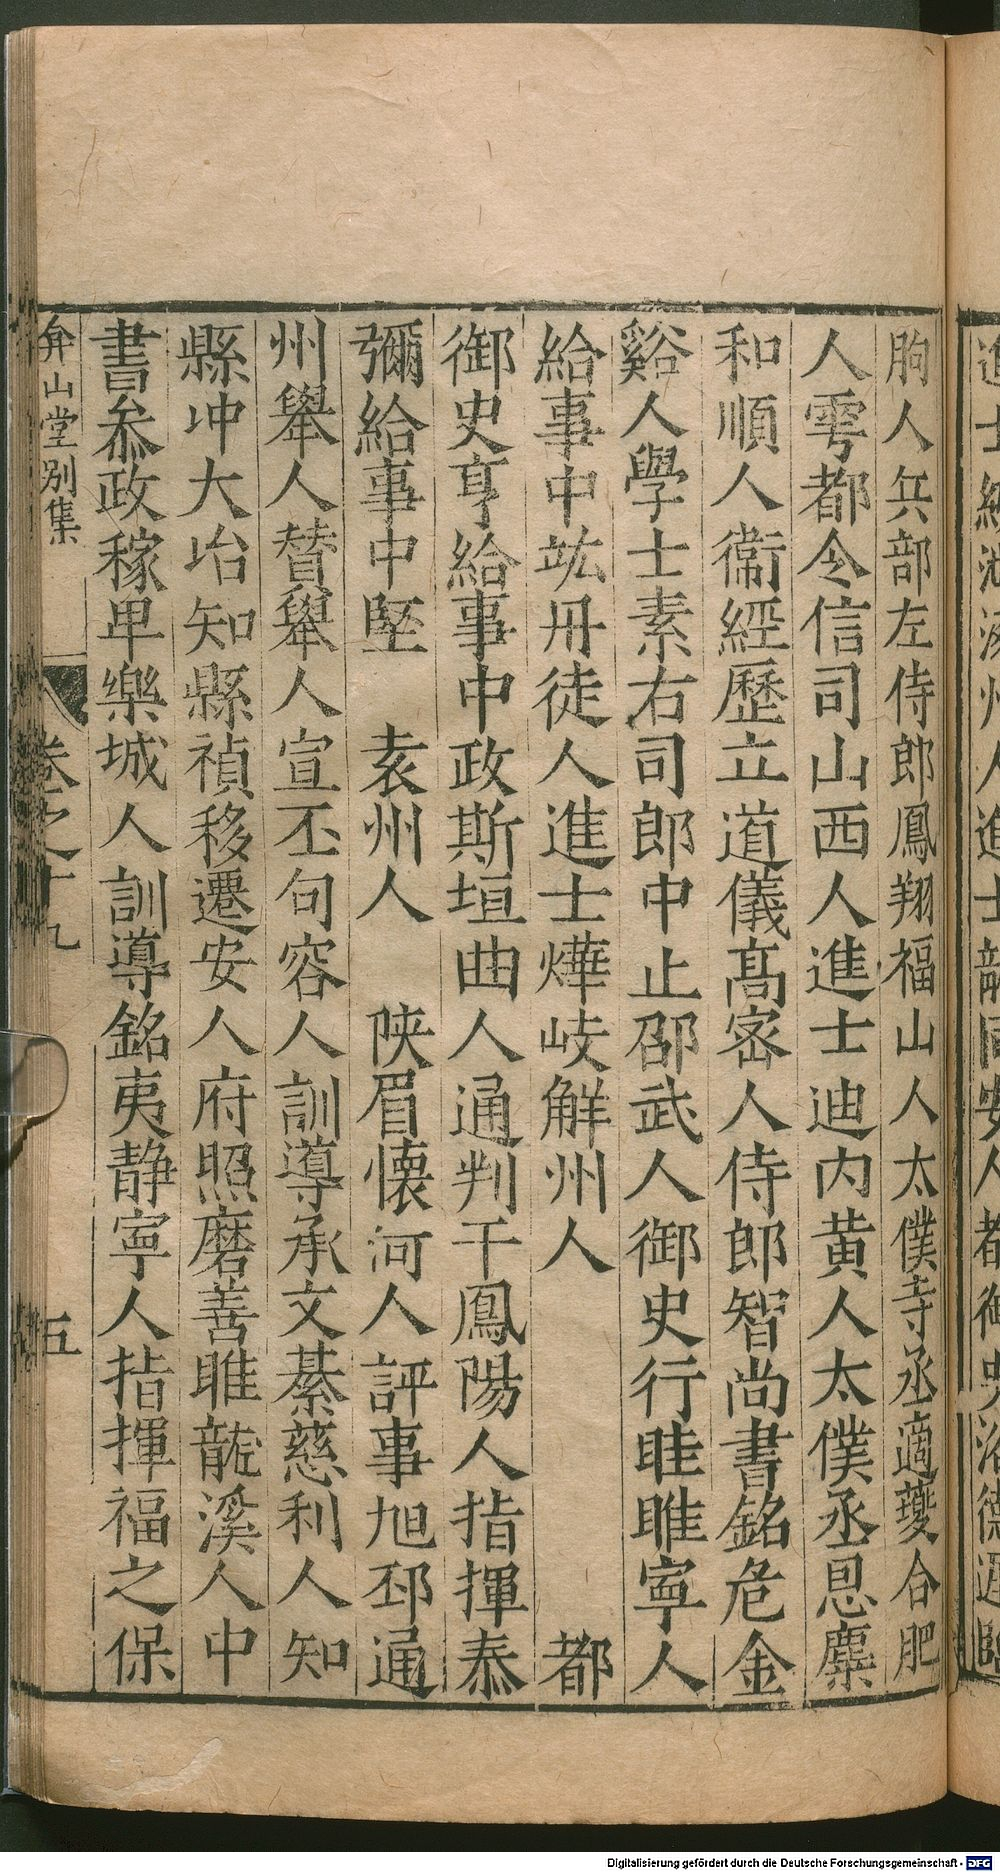 朐人兵部左侍郎鳳翔福山人太僕寺丞適䕫合肥
人雩都令信司山西人進士迪内黄人太僕丞恩麋
和順人衞經歷立道儀髙密人侍郎智尚書銘危金
谿人學士素右司郎中止邵武人御史行眭睢寧人
給事中竑冊徒人進士燁岐解州人 都
御史亨給事中政斯垣曲人通判干鳳陽人指揮泰
彌給事中堅 袁州人 陜眉懐河人評事旭邳通
州舉人賛舉人宣丕句容人訓導承文綦慈利人知
縣冲大冶知縣禎移遷安人府照磨善睢龍溪人中
書叅政稼卑樂城人訓導銘夷静寧人指揮福之保
弇山堂别集 卷之十九 五